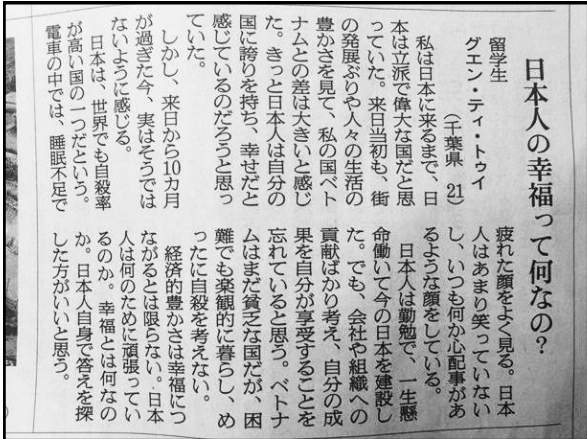 日本人の幸福って何なの?
留学生
グエン・ティ・トゥイ
(千葉県 21)
私は日本に来るまで、日
本は立派で偉大な国だと思
っていた。来日当初も、街
の発展ぶりや人々の生活の
豊かさを見て、私の国ベト
ナムとの差は大きいと感じ
た。きっと日本人は自分の
国に誇りを持ち、幸せだと
感じているのだろうと思っ
ていた。
しかし、来日から10カ月
が過ぎた今、実はそうでは
ないように感じる。
日本は、世界でも自殺率
が高い国の一つだという。
電車の中では、睡眠不足で
疲れた顔をよく見る。日本
人はあまり笑っていない
し、いつも何か心配事があ
るような顔をしている。
日本人は勤勉で、一生懸
命働いて今の日本を建設し
た。でも、会社や組織への
貢献ばかり考え、自分の成
果を自分が享受することを
忘れていると思う。ベトナ
ムはまだ貧乏な国だが、困
難でも楽観的に暮らし、め
ったに自殺を考えない。
経済的豊かさは幸福につ
ながるとは限らない。日本
人は何のために頑張ってい
るのか。幸福とは何なの
か。日本人自身で答えを探
した方がいいと思う。